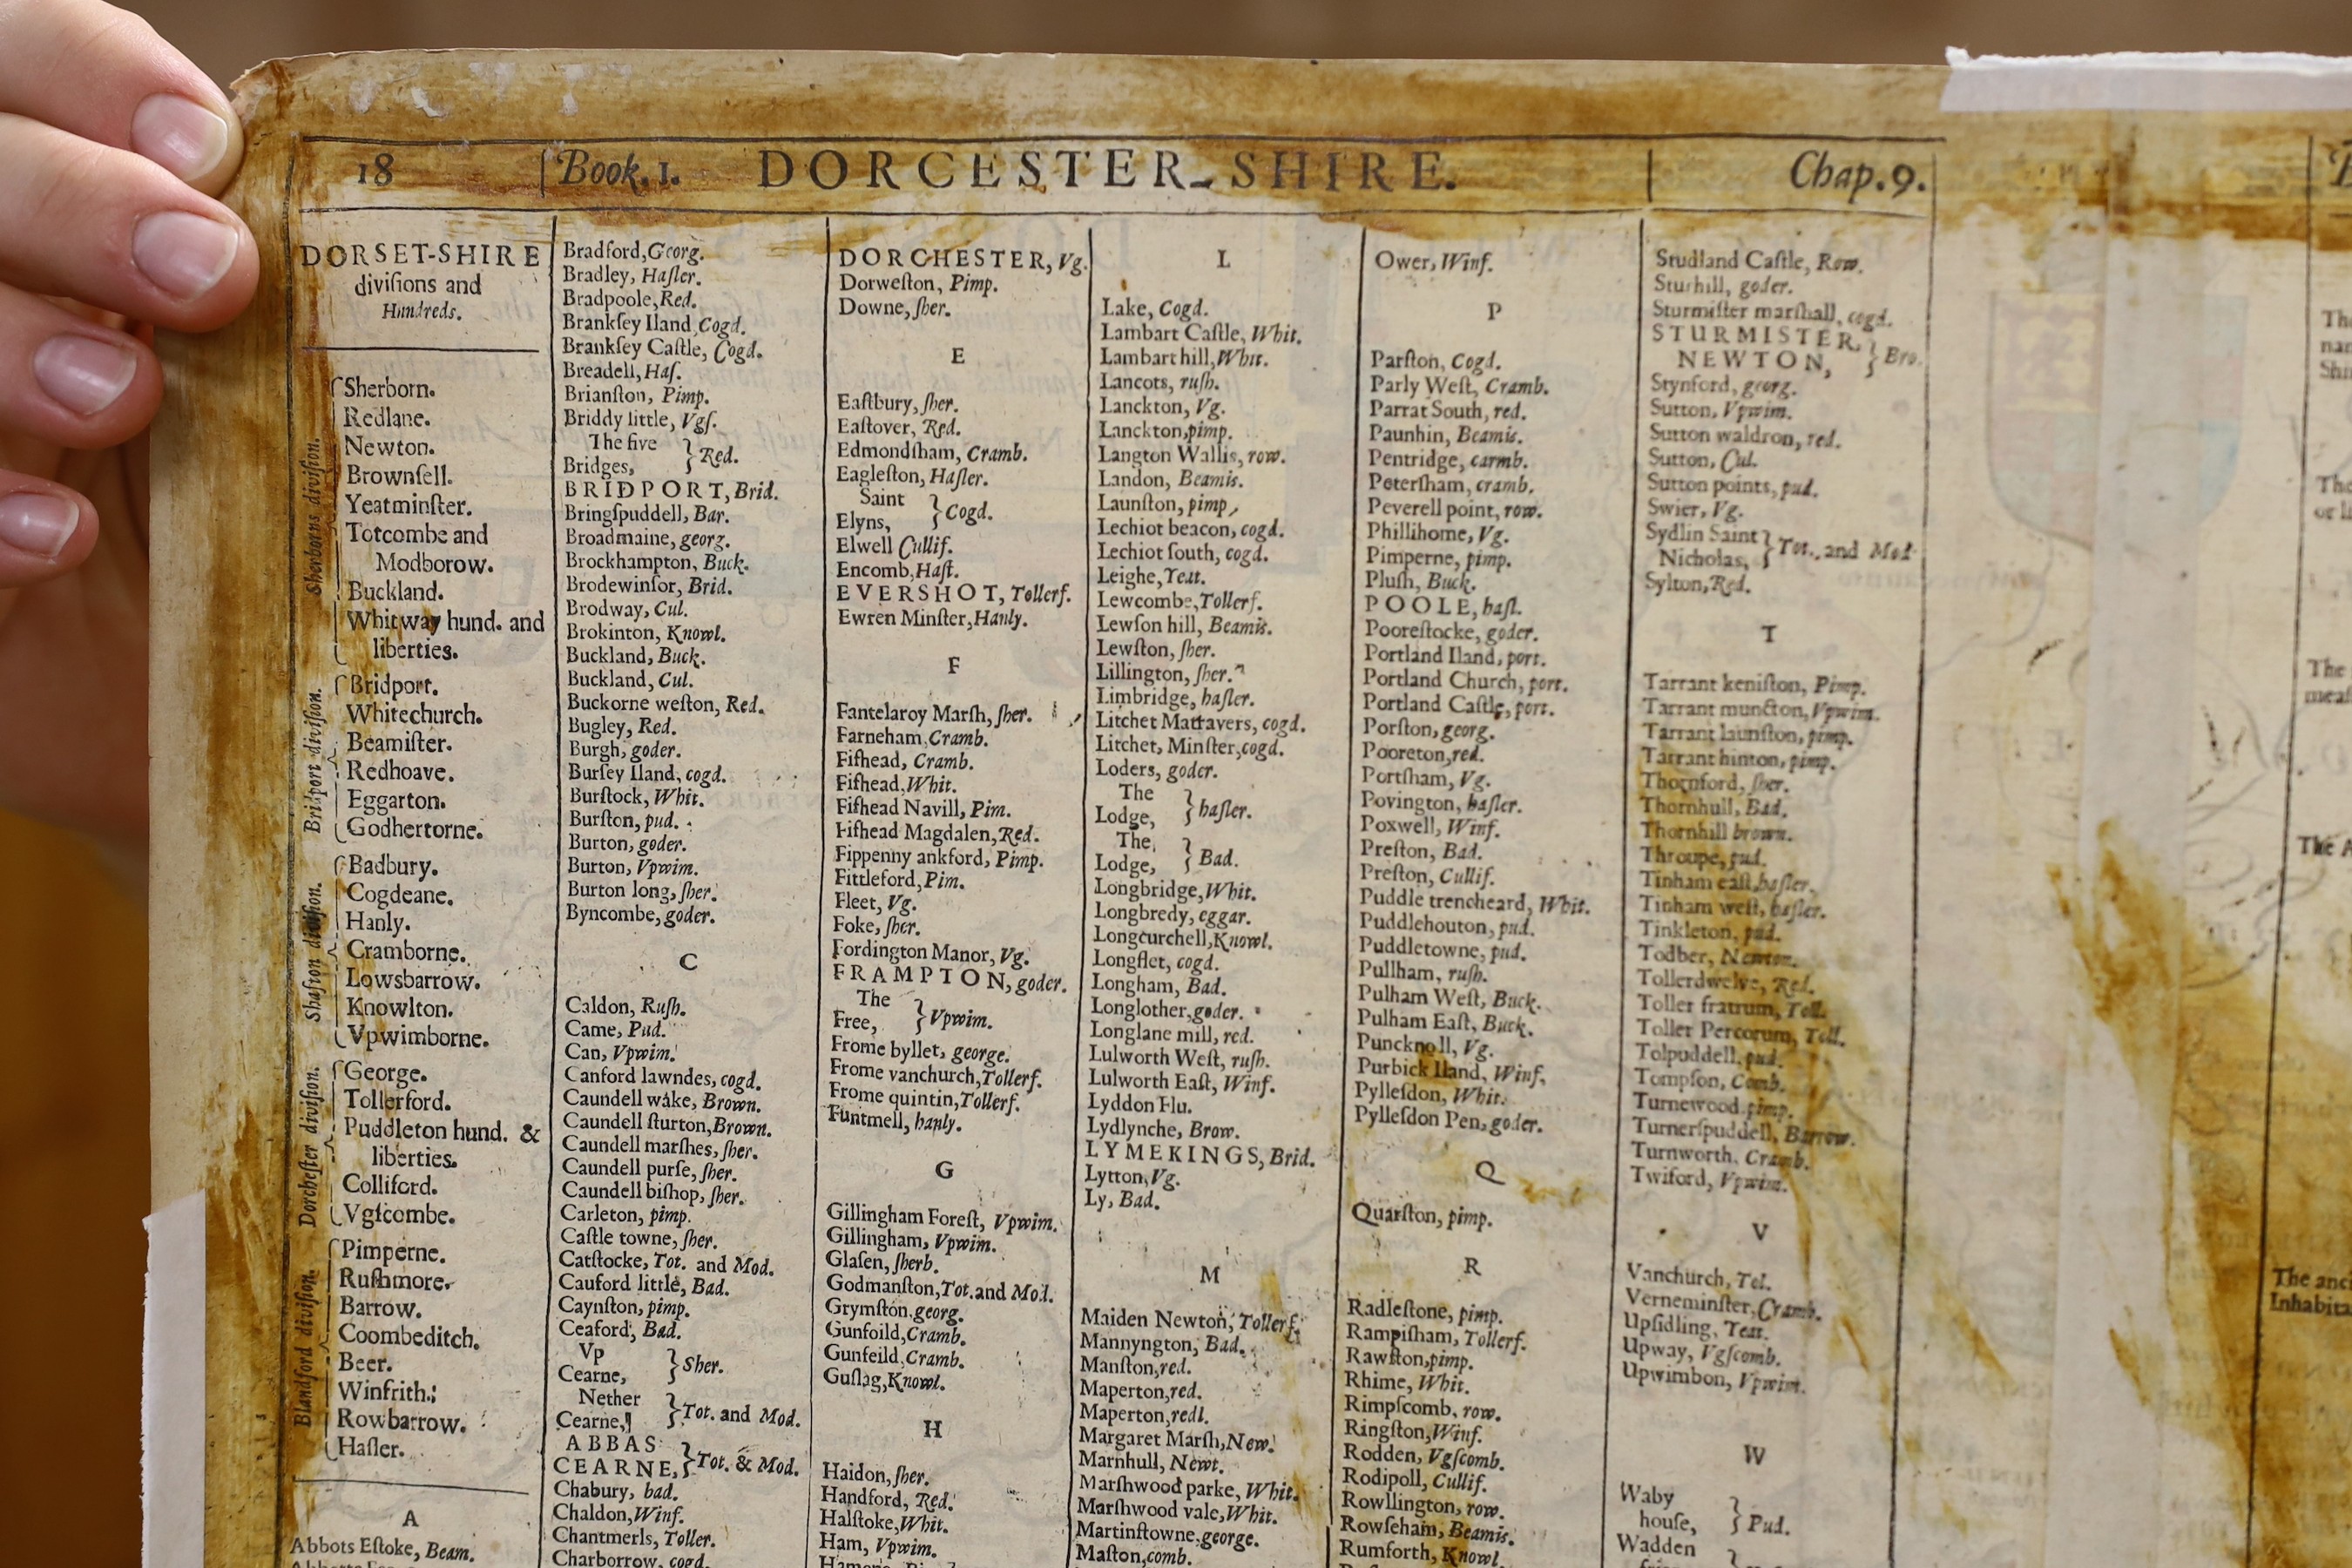 18
Book. 1. DORCESTER-SHIRE.
Chap. 9.
DORSET-SHIRE
diviſions and
Hundreds.
Sherborns diviſion.
Sherborn.
Redlane.
Newton.
Brownſell.
Yeatminſter.
Totcombe and
Modborow.
Buckland.
Whitway hund. and
liberties.
Bridport diviſion.
Bridport.
Whitechurch.
Beamiſter.
Redhoave.
Eggarton.
Godhertorne.
Shaſton diviſion.
Badbury.
Cogdeane.
Hanly.
Cramborne.
Lowsbarrow.
Knowlton.
Vpwimborne.
Dorcheſter diviſion.
George.
Tollerford.
Puddleton hund. &
liberties.
Colliford.
Vgſcombe.
Blandford diviſion.
Pimperne.
Ruſhmore.
Barrow.
Coombeditch.
Beer.
Winfrith.:
Rowbarrow.
Haſler.
A
Abbots Eſtoke, Beam.
Bradford, Georg.
Bradley, Haſler.
Bradpoole, Red.
Brankſey Iland, Cogd.
Brankſey Caſtle, Cogd.
Breadell, Haſ.
Brianſton, Pimp.
Briddy little, Vgſ.
The five
Bridges, } Red.
BRIDPORT, Brid.
Bringſpuddell, Bar.
Broadmaine, georg.
Brockhampton, Buck.
Brodewinſor, Brid.
Brodway, Cul.
Brokinton, Knowl.
Buckland, Buck.
Buckland, Cul.
Buckorne weſton, Red.
Bugley, Red.
Burgh, goder.
Burſey Iland, cogd.
Burſtock, Whit.
Burſton, pud.
Burton, goder.
Burton, Vpwim.
Burton long, ſher.
Byncombe, goder.
C
Caldon, Ruſh.
Came, Pud.
Can, Vpwim.
Canford lawndes, cogd.
Caundell wake, Brown.
Caundell ſturton, Brown.
Caundell marſhes, ſher.
Caundell purſe, ſher.
Caundell biſhop, ſher.
Carleton, pimp.
Caſtle towne, ſher.
Catſtocke, Tot. and Mod.
Cauford little, Bad.
Caynſton, pimp.
Ceaford, Bad.
Vp
Cearne, } Sher.
Nether
Cearne, } Tot. and Mod.
ABBAS
CEARNE, } Tot. & Mod.
Chabury, bad.
Chaldon, Winf.
Chantmerls, Toller.
Charborrow, cogd.
DORCHESTER, Vg.
Dorweſton, Pimp.
Downe, ſher.
E
Eaſtbury, ſher.
Eaſtover, Red.
Edmondſham, Cramb.
Eagleſton, Haſler.
Saint
Elyns, } Cogd.
Elwell Cullif.
Encomb, Haſt.
EVERSHOT, Tollerf.
Ewren Minſter, Hanly.
F
Fantelaroy Marſh, ſher.
Farneham, Cramb.
Fifhead, Cramb.
Fifhead, Whit.
Fifhead Navill, Pim.
Fifhead Magdalen, Red.
Fippenny ankford, Pimp.
Fittleford, Pim.
Fleet, Vg.
Foke, ſher.
Fordington Manor, Vg.
FRAMPTON, goder.
The
Free, } Vpwim.
Frome byllet, george.
Frome vanchurch, Tollerf.
Frome quintin, Tollerf.
Funtmell, hanly.
G
Gillingham Foreſt, Vpwim.
Gillingham, Vpwim.
Glaſen, ſherb.
Godmanſton, Tot. and Mod.
Grymſton, georg.
Gunfoild, Cramb.
Gunfeild, Cramb.
Guſſag, Knowl.
H
Haidon, ſher.
Handford, Red.
Halſtoke, Whit.
Ham, Vpwim.
L
Lake, Cogd.
Lambart Caſtle, Whit.
Lambart hill, Whit.
Lancots, ruſh.
Lanckton, Vg.
Lanckton, pimp.
Langton Wallis, row.
Landon, Beamis.
Launſton, pimp,
Lechiot beacon, cogd.
Lechiot ſouth, cogd.
Leighe, Yeat.
Lewcombe, Tollerf.
Lewſon hill, Beamis.
Lewſton, ſher.
Lillington, ſher.
Limbridge, haſler.
Litchet Mattavers, cogd.
Litchet, Minſter, cogd.
Loders, goder.
The
Lodge, } haſler.
The
Lodge, } Bad.
Longbridge, Whit.
Longbredy, eggar.
Longcurchell, Knowl.
Longflet, cogd.
Longham, Bad.
Longlother, goder.
Longlane mill, red.
Lulworth Weſt, ruſh.
Lulworth Eaſt, Winf.
Lyddon Flu.
Lydlynche, Brow.
LYMEKINGS, Brid.
Lytton, Vg.
Ly, Bad.
M
Maiden Newton, Tollerf.
Mannyngton, Bad.
Manſton, red.
Maperton, red.
Maperton, redl.
Margaret Marſh, New.
Marnhull, Newt.
Marſhwood parke, Whit.
Marſhwood vale, Whit.
Martinſtowne, george.
Maſton, comb.
Ower, Winf.
P
Parſton, Cogd.
Parly Weſt, Cramb.
Parrat South, red.
Paunhin, Beamis.
Pentridge, carmb.
Peterſham, cramb.
Peverell point, row.
Phillihome, Vg.
Pimperne, pimp.
Pluſh, Buck.
POOLE, haſl.
Pooreſtocke, goder.
Portland Iland, port.
Portland Church, port.
Portland Caſtle, port.
Porſton, georg.
Pooreton, red.
Portſham, Vg.
Povington, haſler.
Poxwell, Winf.
Preſton, Bad.
Preſton, Cullif.
Puddle trencheard, Whit.
Puddlehouton, pud.
Puddletowne, pud.
Pullham, ruſh.
Pulham Weſt, Buck.
Pulham Eaſt, Buck.
Puncknoll, Vg.
Purbick Iland, Winf.
Pylleſdon, Whit.
Pylleſdon Pen, goder.
Q
Quarſton, pimp.
R
Radleſtone, pimp.
Rampiſham, Tollerf.
Rawſton, pimp.
Rhime, Whit.
Rimpſcomb, row.
Ringſton, Winf.
Rodden, Vgſcomb.
Rodipoll, Cullif.
Rowllington, row.
Rowſeham, Beamis.
Rumforth, Knowl.
Studland Caſtle, Row.
Sturhill, goder.
Sturmiſter marſhall, cogd.
STURMISTER
NEWTON, } Bro.
Stynford, georg.
Sutton, Vpwim.
Sutton waldron, red.
Sutton, Cul.
Sutton points, pud.
Swier, Vg.
Sydlin Saint
Nicholas, } Tot. and Mod
Sylton, Red.
T
Tarrant keniſton, Pimp.
Tarrant muncton, Vpwim.
Tarrant launſton, pimp.
Tarrant hinton, pimp.
Thornford, ſher.
Thornhull, Bad.
Thornhill brown.
Throupe, pud.
Tinham eaſt, haſler.
Tinham weſt, haſler.
Tinkleton, pud.
Todber, Newton.
Tollerdwelve, Red.
Toller fratrum, Toll.
Toller Percorum, Toll.
Tolpuddell, pud.
Tompſon, Comb.
Turnewood, pimp.
Turnerſpuddell, Barrow.
Turnworth, Cramb.
Twiford, Vpwim.
V
Vanchurch, Tol.
Verneminſter, Cramb.
Upſidling, Teat.
Upway, Vgſcomb.
Upwimbon, Vpwim.
W
Waby
houſe, } Pud.
Wadden
The
The
The
The A
The anc
Inhabita